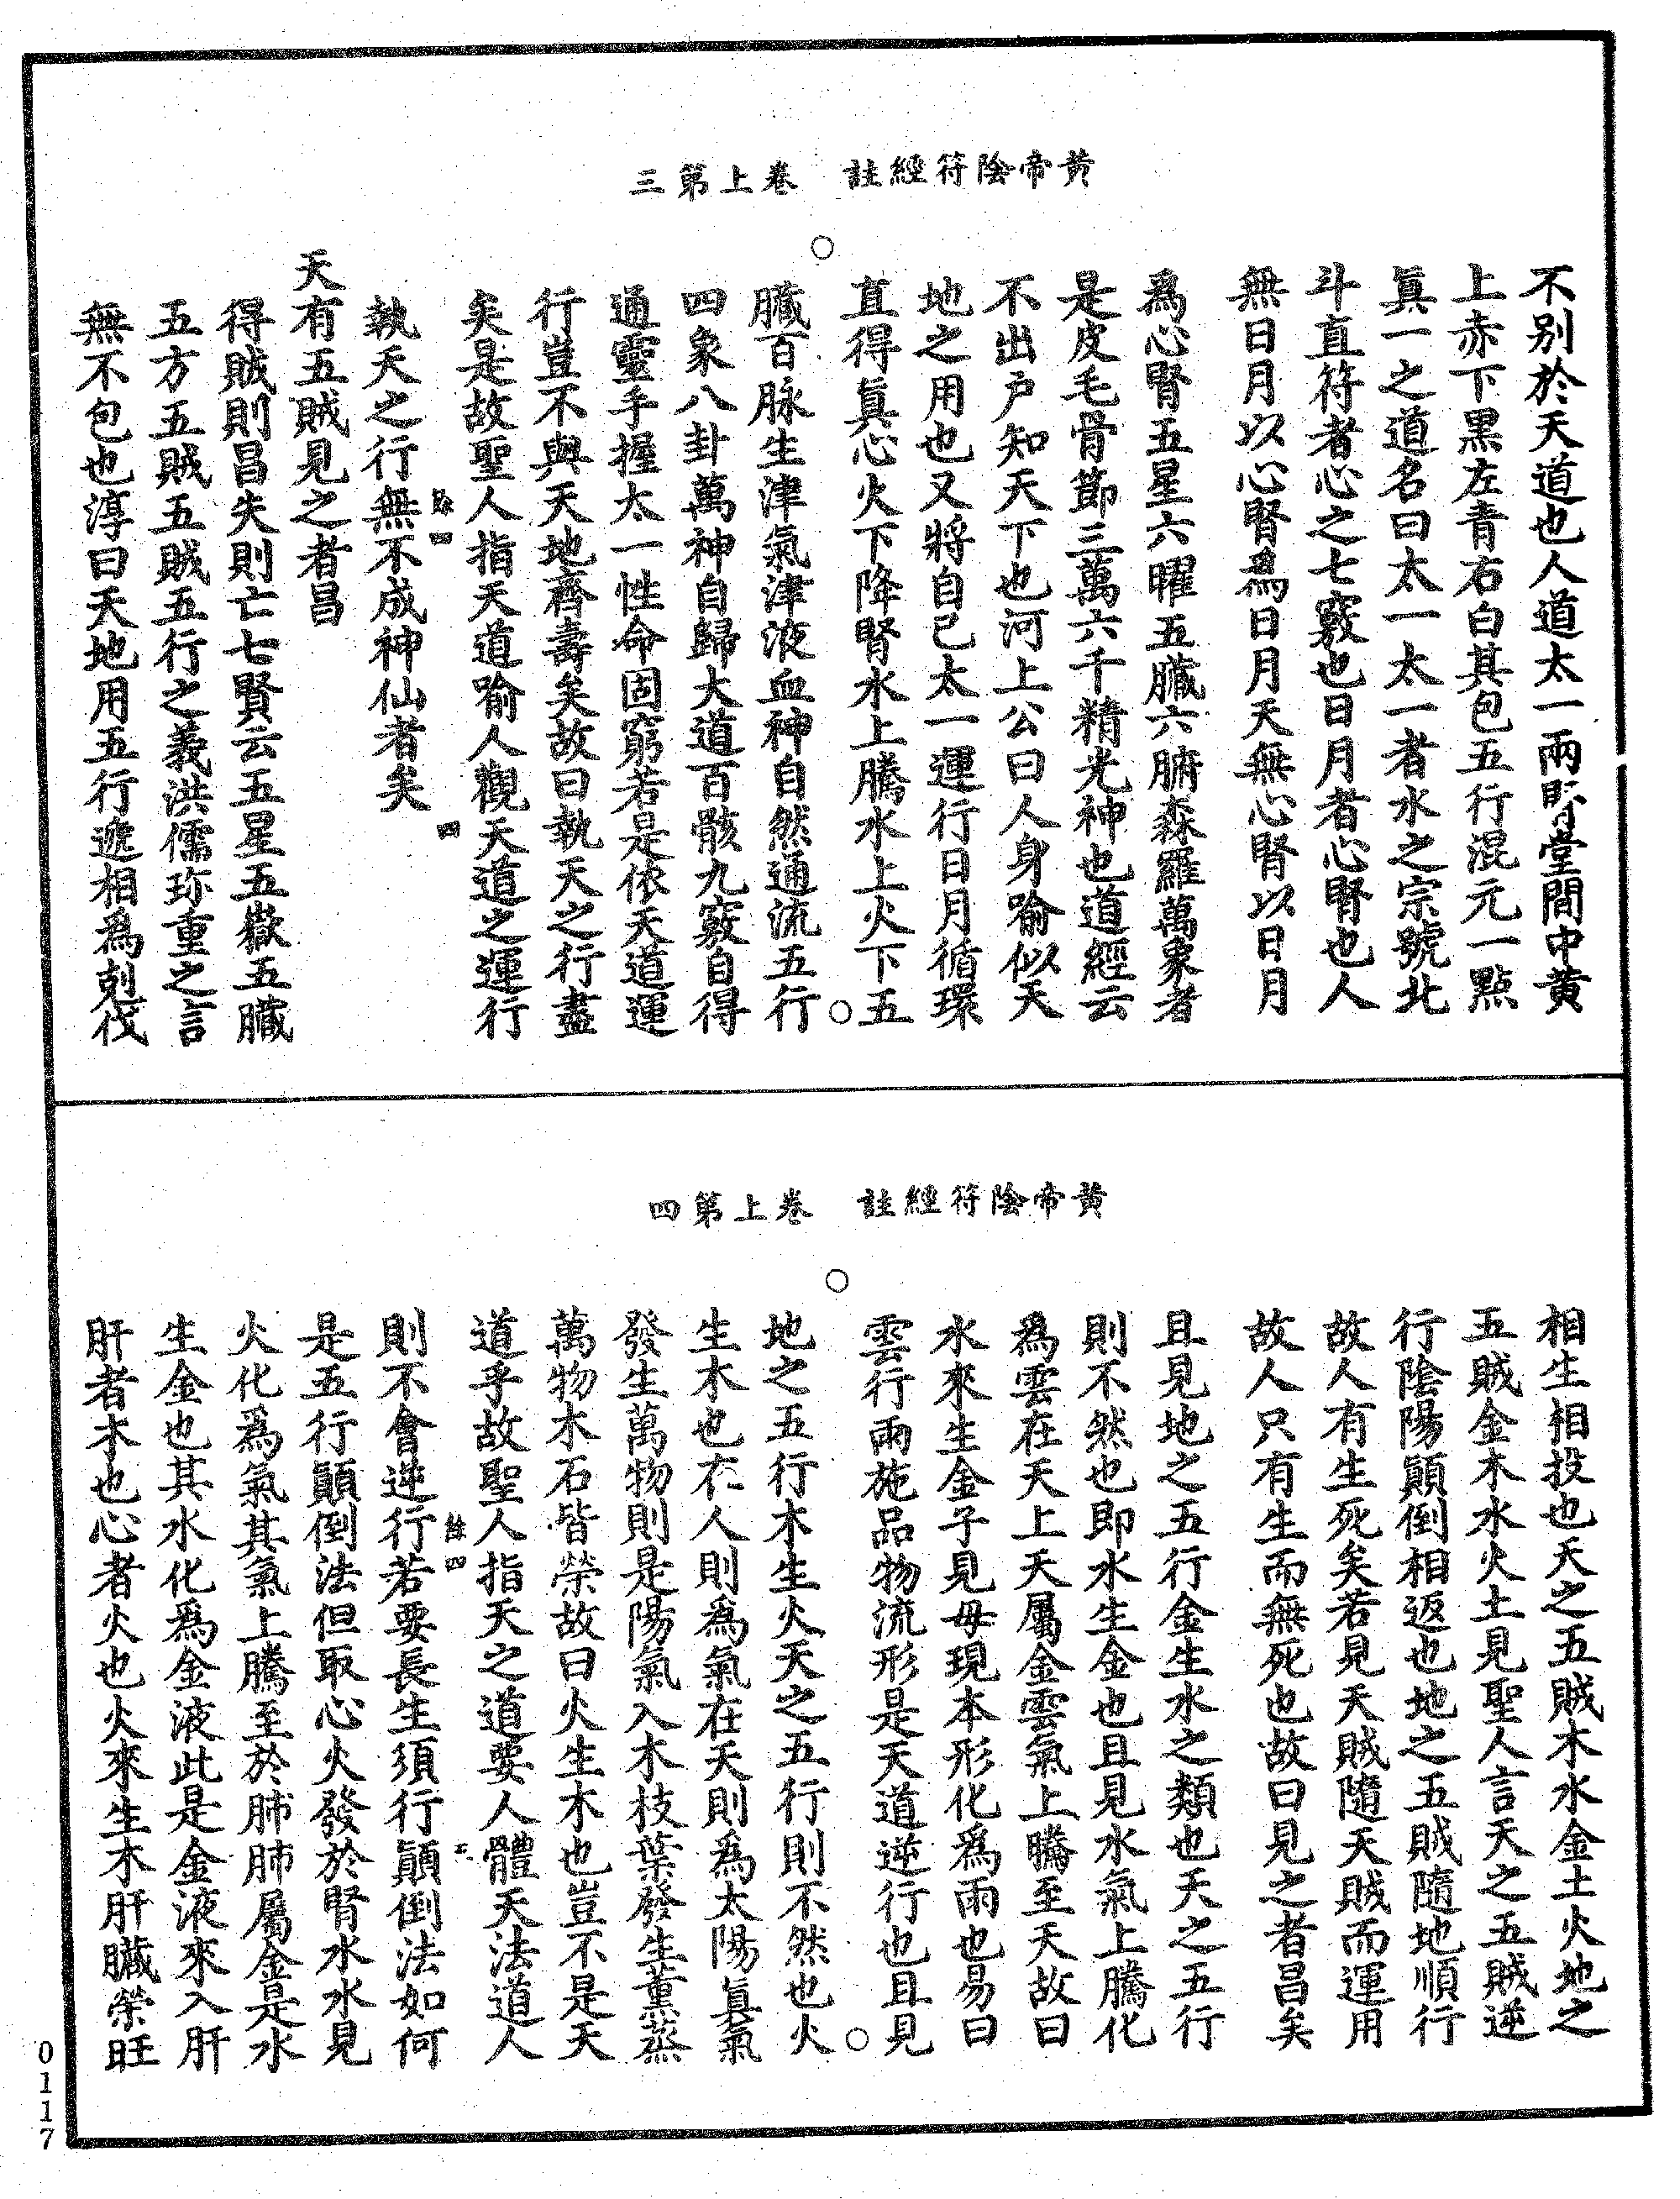 黃帝陰符經註　卷上第三
不別於天道也人道太一兩腎堂間中黃
上赤下黑左青右白其包五行混元一點
眞一之道名曰太一太一者水之宗號北
斗直符者心之七竅也日月者心腎也人
無日月以心腎爲日月天無心腎以日月
爲心腎五星六曜五臟六腑森羅萬象者
是皮毛骨節三萬六千精光神也道經云
不出户知天下也河上公曰人身喻似天
地之用也又將自己太一運行日月循環
直得眞心火下降腎水上騰水上火下五
臟百脉生津氣津液血神自然通流五行
四象八卦萬神自歸大道百骸九竅自得
通靈手握太一性命固窮若是依天道運
行豈不與天地齊壽矣故曰執天之行盡
矣是故聖人指天道喻人觀天道之運行
執天之行無不成神仙者矣
天有五賊見之者昌
得賊則昌失則亡七賢云五星五嶽五臟
五方五賊五行之義洪儒珎重之言
無不包也淳曰天地用五行遞相爲剋伐
黃帝陰符經註　卷上第四
相生相投也天之五賊木水金土火地之
五賊金木水火土見聖人言天之五賊逆
行陰陽顚倒相返也地之五賊隨地順行
故人有生死矣若見天賊隨天賊而運用
故人只有生而無死也故曰見之者昌矣
且見地之五行金生水之類也天之五行
則不然也即水生金也且見水氣上騰化
爲雲在天上天屬金雲氣上騰至天故曰
水來生金子見母現本形化爲雨也易曰
雲行雨施品物流形是天道逆行也且見
地之五行木生火天之五行則不然也火
生木也在人則爲氣在天則爲太陽眞氣
發生萬物則是陽氣入木枝葉發生薰蒸
萬物木石皆榮故曰火生木也豈不是天
道乎故聖人指天之道要人體天法道人
則不會逆行若要長生須行顚倒法如何
是五行顚倒法但取心火發於腎水水見
火化爲氣其氣上騰至於肺肺屬金是水
生金也其水化爲金液此是金液來入肝
肝者木也心者火也火來生木肝臟榮旺
0117